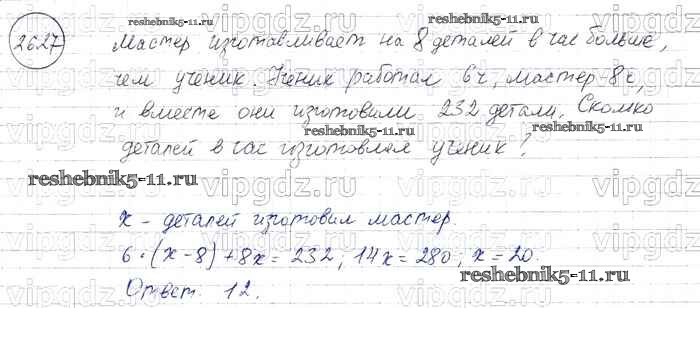 2627
Мастер изготавливает на 8 деталей в час больше,
чем ученик. Ученик работал 6ч, мастер - 8ч,
и вместе они изготовили 232 детали. Сколко
деталей в час изготовлял ученик?
x - деталей изготовил мастер.
6·(x-8)+8x=232; 14x=280; x=20.
Ответ. 12.
reshebnik5-11.ru
reshebnik5-11.ru
reshebnik5-11.ru
reshebnik5-11.ru
reshebnik5-11.ru
vipgdz.ru